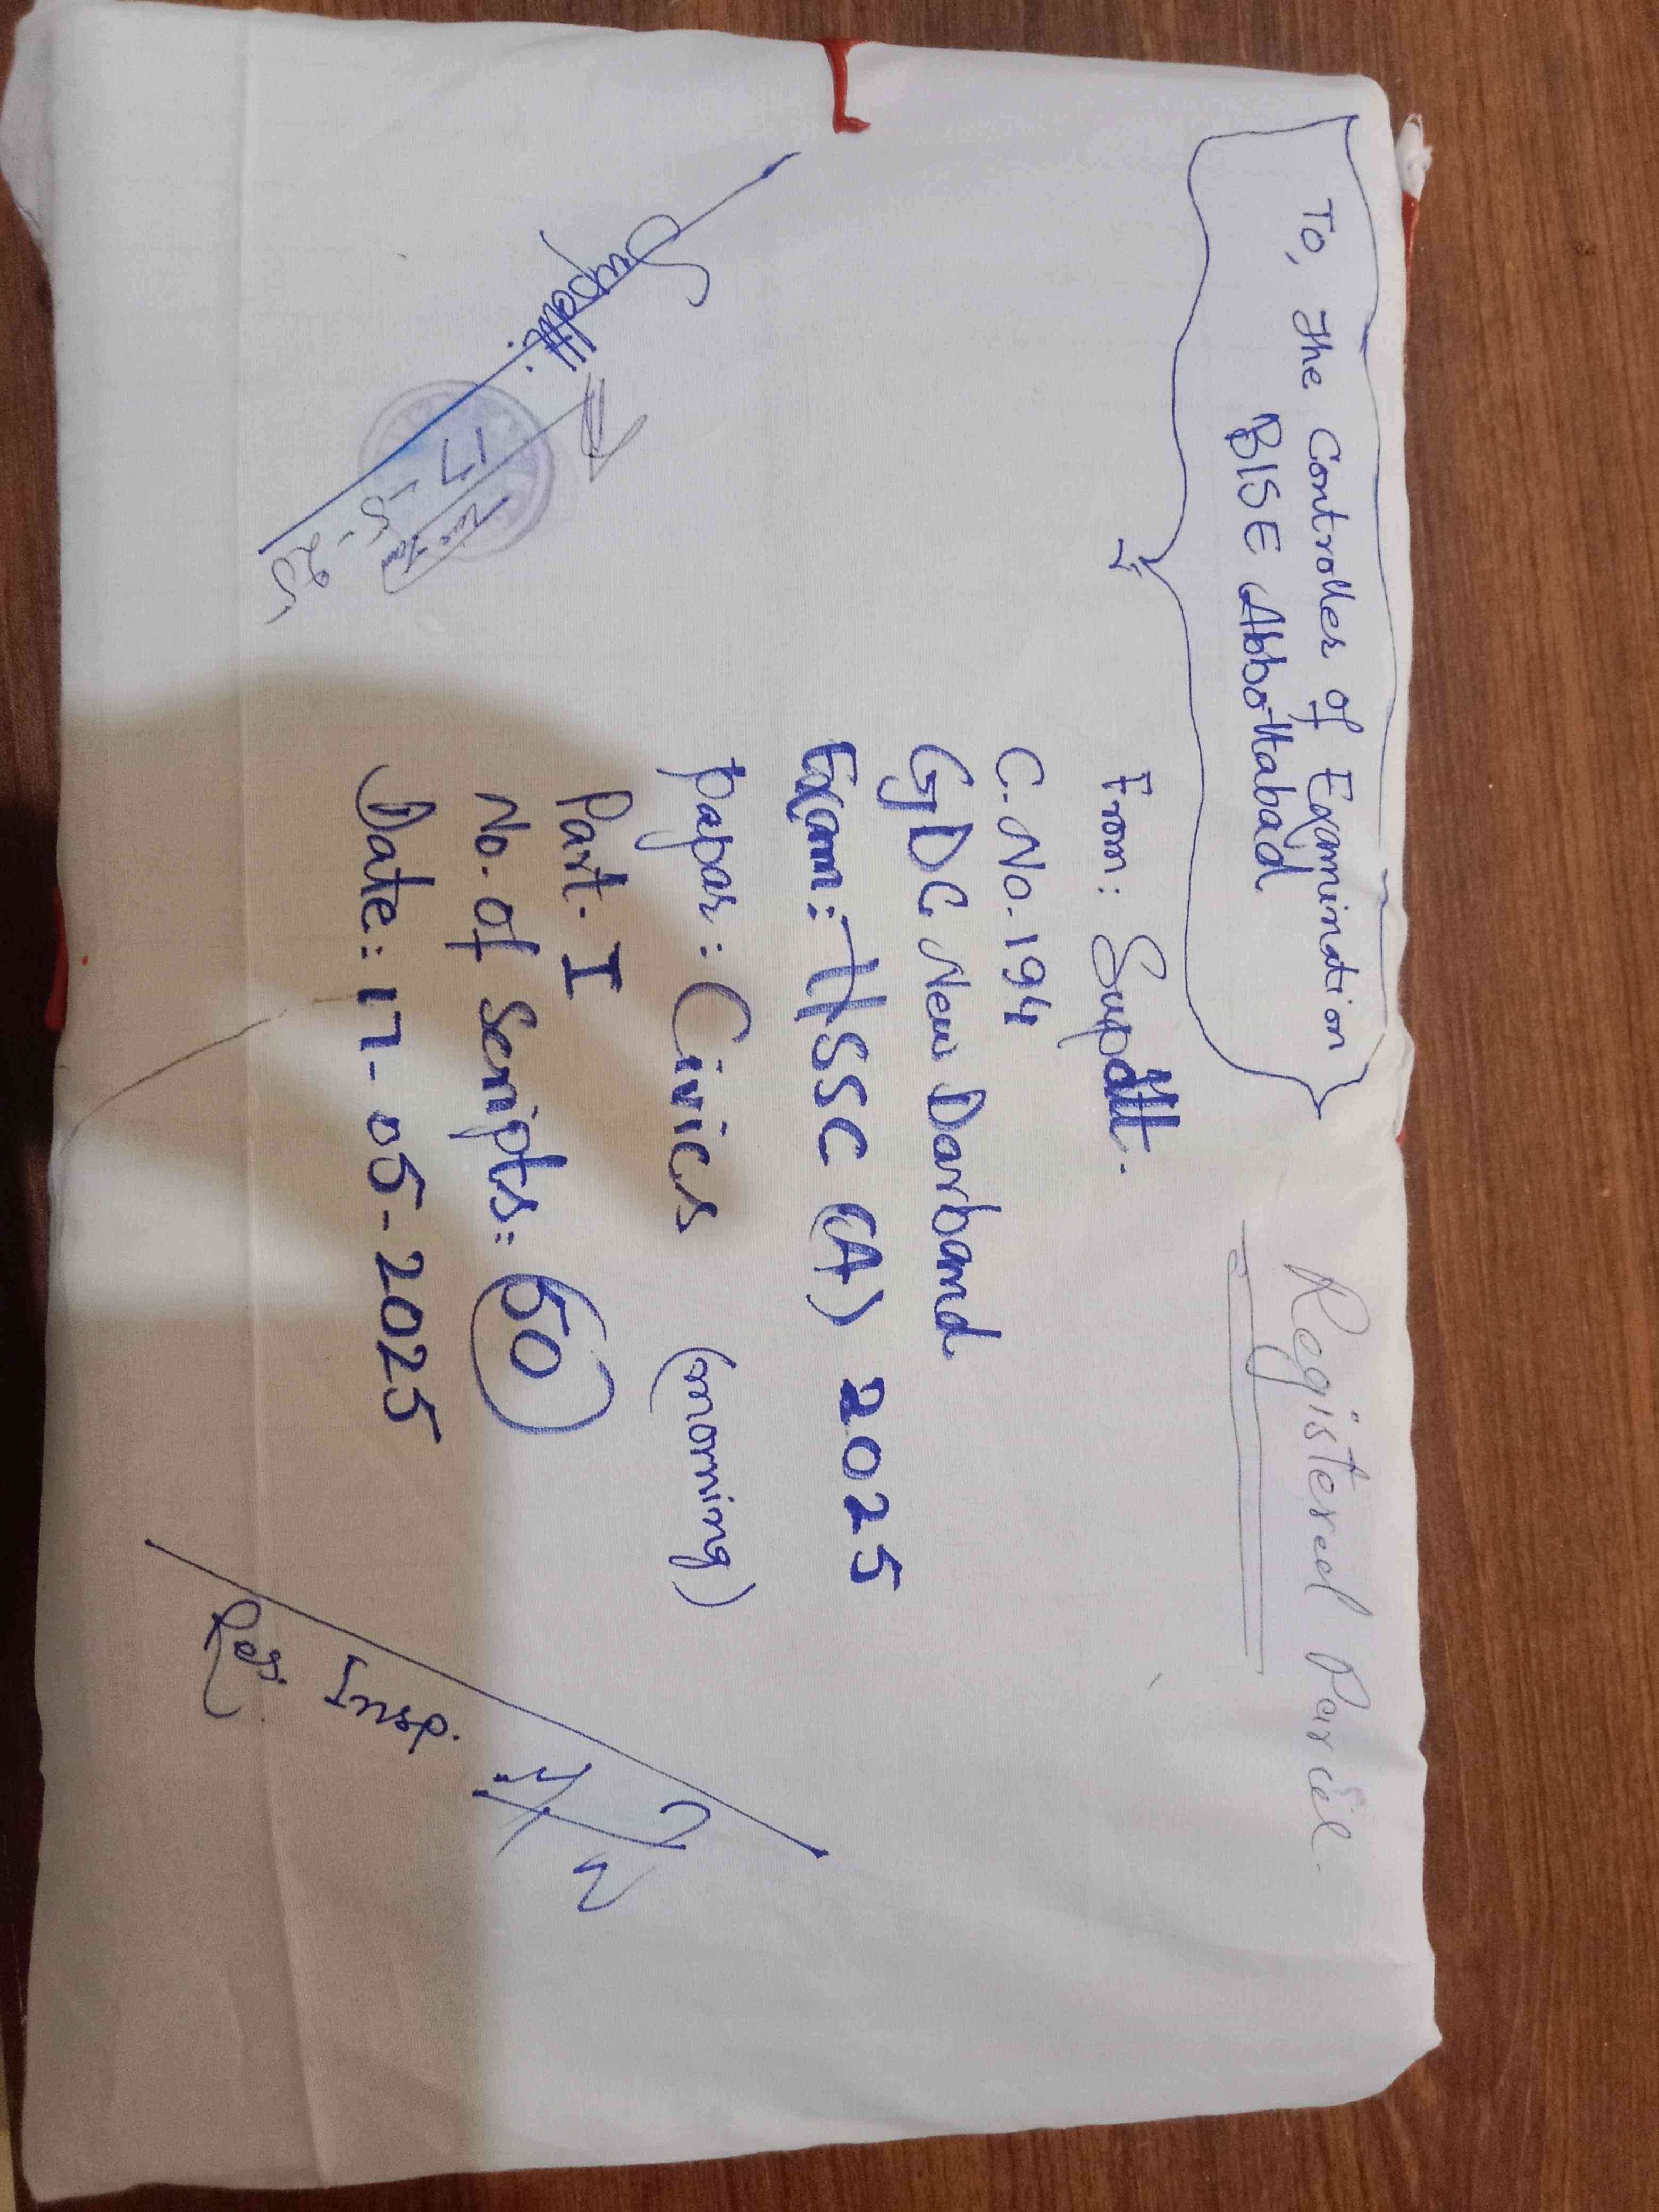 To, The Controller of Examination
BISE Abbottabad
Registered Parcel.
From: Supdtt.
C.No.194
GDC New Darband
Exam: HSSC (A) 2025
Papar: Civics (morning)
Part. I
No. of Scripts: 50
Date: 17-05-2025
Supdtt:
17-05-25
Insp.